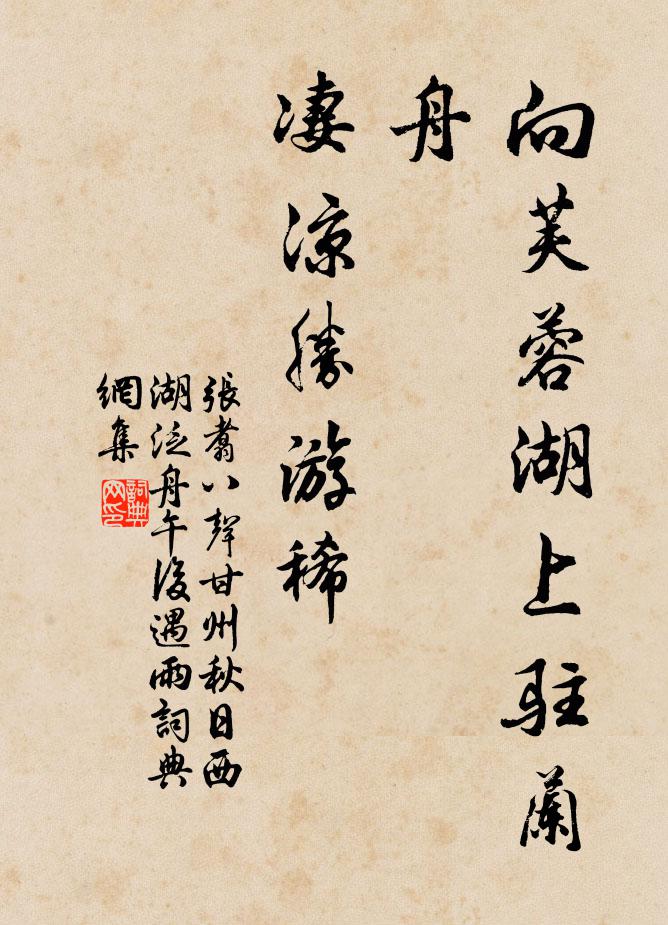 向芙蓉湖上駐蘭
舟
凄涼勝游稀
張翥八聲甘州秋日西
湖泛舟午後遇雨詞典
網集
詞典
网印